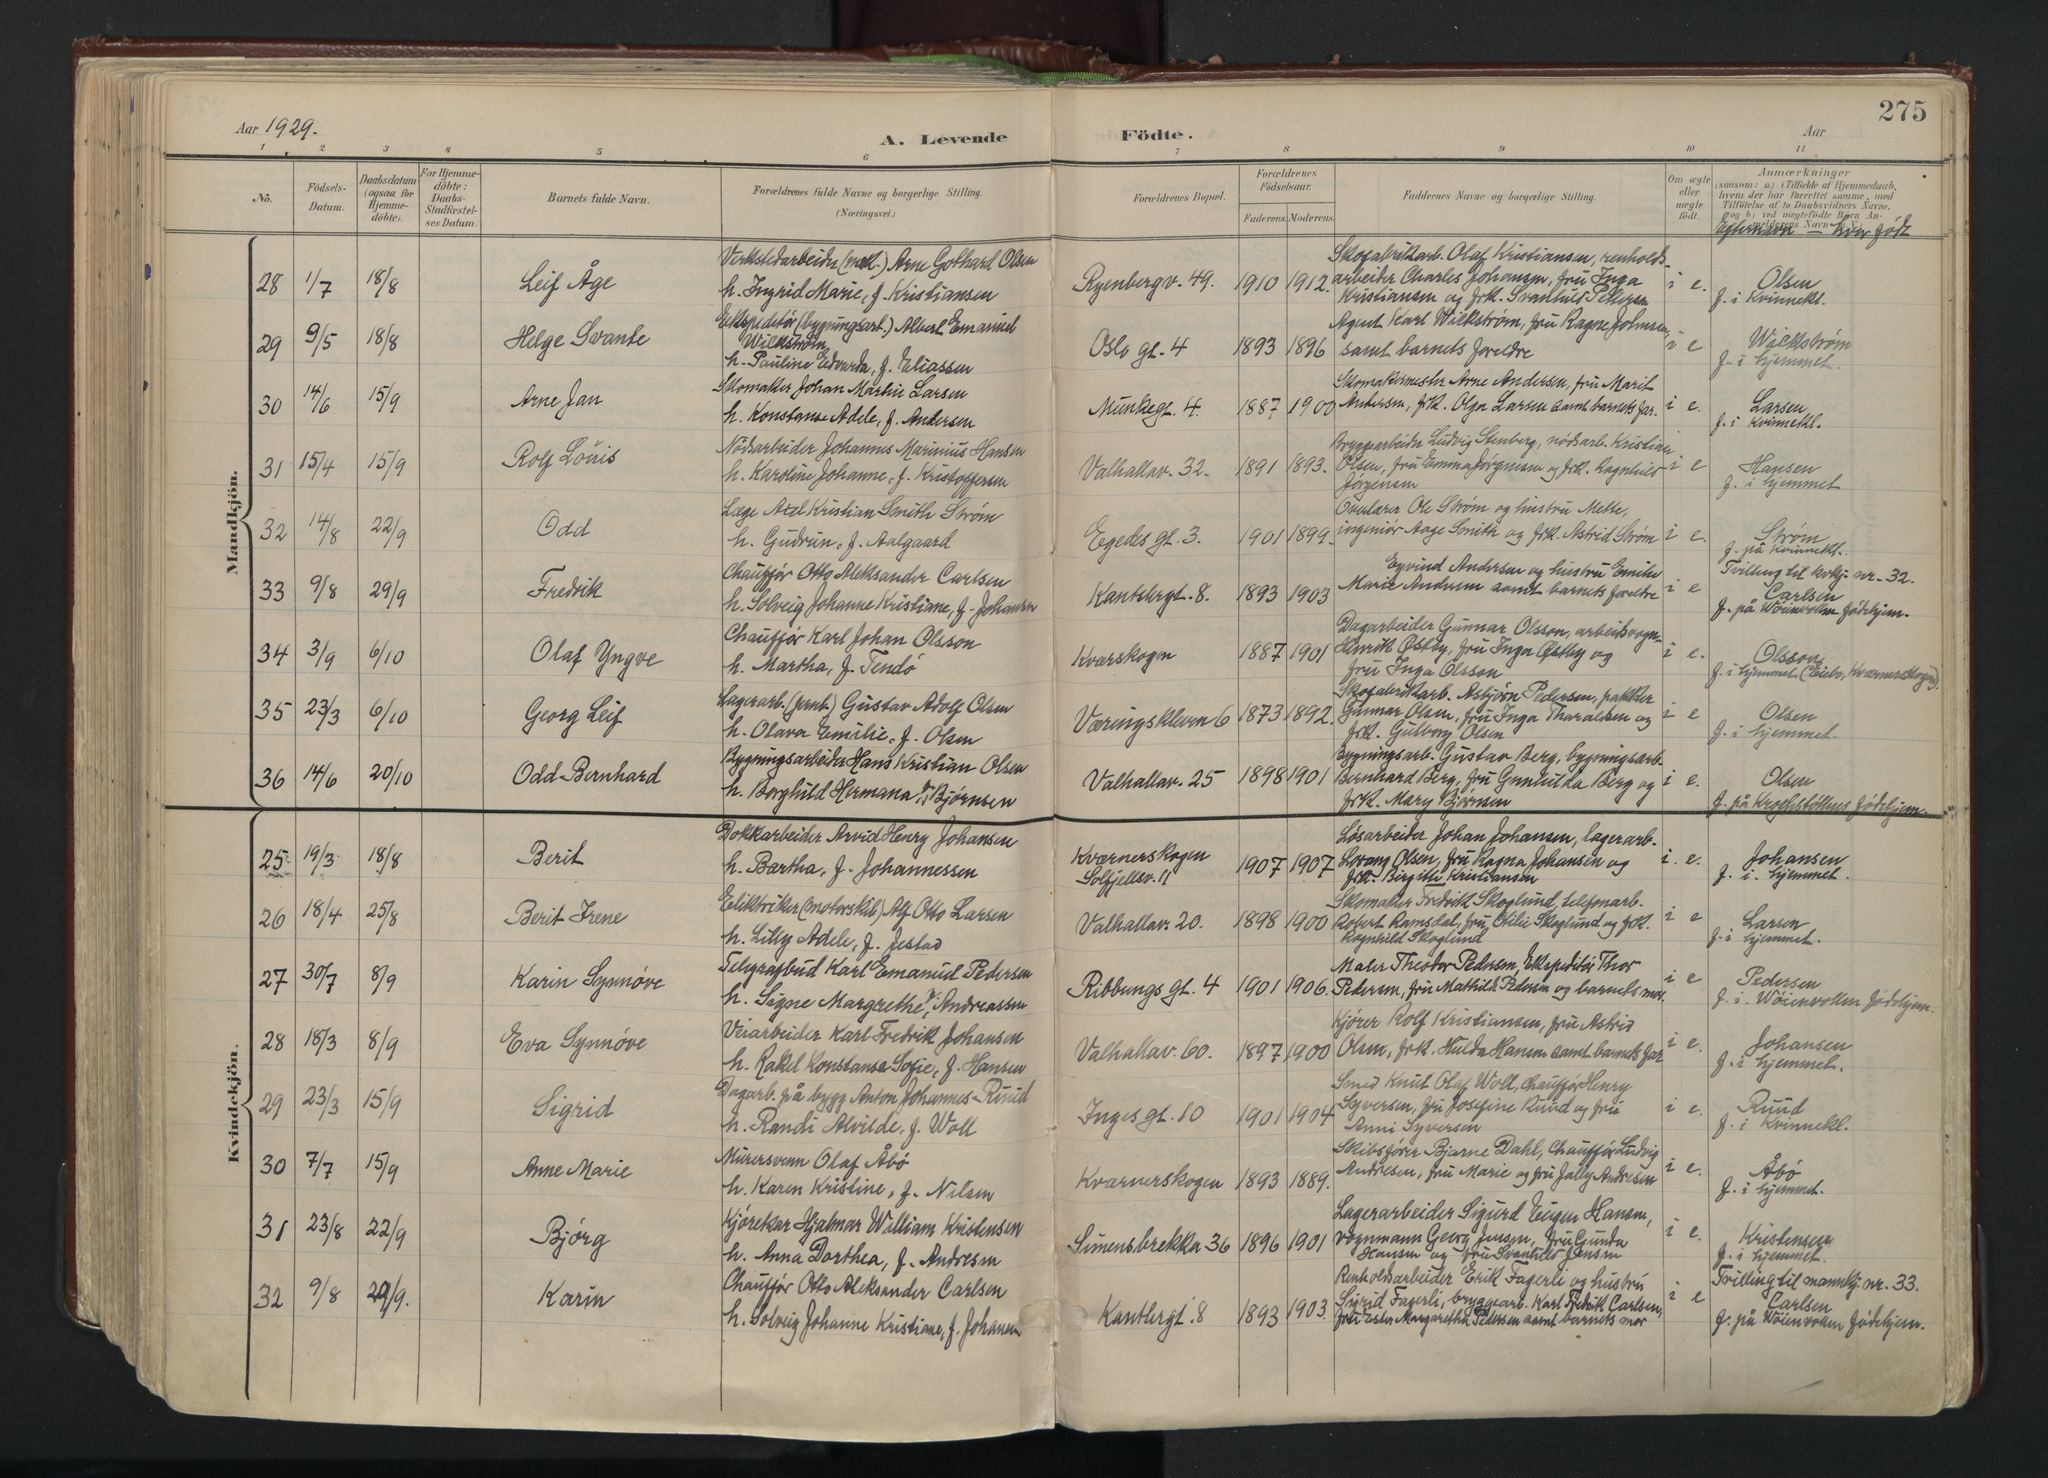 275
Aar 1929.
A. Levende Födte.
Aar
1 2 3 4 5 6 7 8 9 10 11
No.
Födsels-Datum.
Daabsdatum (ogsaa for Hjemme-döbte).
For Hjemme-döbte: Daabs-Stadfæstel-ses Datum.
Barnets fulde Navn.
Forældrenes fulde Navne og borgerlige Stilling. (Næringsvei.)
Forældrenes Bopæl.
Forældrenes Födselsaar.
Faderens. Moderens.
Faddernes Navne og borgerlige Stilling.
Om ægte eller uægte födt.
Anmærkninger
(saasom: a) i Tilfælde af Hjemmedaab,
hvem der har forrettet samme, med
Tilföielse af to Daabsvidners Navne,
og b) ved uegtefödte Börn An-
Efternavn — hvor født
Mandkjön.
28 1/7 18/8 Leif Åge
Verkstedarbeider (mek.) Arne Gothard Olsen
h. Ingrid Marie, f. Kristiansen
Ryenbergv. 49. 1910 1912.
Skofabrikarb. Olaf Kristiansen, renholds-
arbeider Charles Johansen, fru Inga
Kristiansen og frk. Svanhild Pedersen
i e. Olsen
f. i Kvinnekl.
29 9/5 18/8 Helge Svante
Ekspeditör (bygningsart.) Albert Emanuel
Wickstrøm
h. Pauline Edvarda, f. Eliassen
Oslo gt. 4 1893 1896
Agent Karl Wickstrøm, fru Ragna Johnsen,
samt barnets foreldre
i e Wickstrøm
f. i hjemmet.
30 14/6 15/9 Arne Jan
Skomaker Johan Martin Larsen
h. Konstanse Adele, f. Andersen
Munkegt. 4. 1887 1900
Skomakermester Arne Andersen, fru Marit
Andersen, frk. Olga Larsen samt barnets far.
i e. Larsen
f. i Kvinnekl.
31 15/4 15/9 Rolf Löuis
Nödsarbeider Johannes Marinius Hansen
h. Karoline Johanne, f. Kristoffersen
Valhallav. 32. 1891 1893.
Bryggearbeider Ludvig Stenberg, nödsarb. Kristian
Olsen, fru Emma Jørgensen og frk. Ragnhild
Jørgensen
i e Hansen
f. i hjemmet
32 14/8 22/9 Odd
Læge Axel Kristian Smith Strøm
h. Gudrun, f. Aalgaard
Egedes gt. 3. 1901 1899.
Overlærer Ole Strøm og hustru Mette,
ingeniør Aage Smith og frk. Astrid Strøm
i e. Strøm
f. på Kvinnekl.
33 9/8 29/9 Fredrik
Chauffør Otto Aleksander Carlsen
h. Solveig Johanne Kristiane, f. Johansen
Kantlergt. 8. 1893 1903
Eyvind Andersen og hustru Emilie
Marie Andersen samt barnets foreldre
i e Tvilling til kvkj. nr. 32.
Carlsen
f. på Wöienvollen fødehjem.
34 3/9 6/10 Olaf Yngve
Chauffør Karl Johan Olsson
h. Martha, f. Tendö
Kværskogen 1887 1901
Dagarbeider Gunnar Olsson, arbeidsvogn-
Henrik Østby, fru Inga Østby og
fru Inga Olsson
i e. Olsson
f. i hjemmet
35 23/3 6/10 Georg Leif
Lagerarb. (jernb.) Gustav Adolf Olsen
h. Olava Emilie, f. Olsen
Væringskleven 6 1873 1892.
Skofabrikarb. Asbjørn Pedersen, pakker
Gunnar Olsen, fru Inga Tharaldsen og
frk. Gulborg Olsen
i e Olsen
f. i hjemmet.
36 14/6 20/10 Odd-Bernhard
Bygningsarbeider Hans Kristian Olsen
h. Borghild Hermana, f. Bjørnsen
Valhallav. 25 1898 1901
Bygningsarb. Gustav Berg, bygningsarb.
Bernhard Berg, fru Gunhilda Berg og
frk. Mary Bjørnsen
i e. Olsen
f. på Krohstöttens fødehjem.
Kvindekjön.
25 19/3 18/8 Berit
Dokkarbeider Arvid Henry Johansen
h. Bartha, f. Johannessen
Kværnerskogen
Solfjellsv. 11 1907 1907
Løsarbeider Johan Johansen, lagerarb.
Lorang Olsen, fru Ragna Johansen og
frk. Birgithe Kristiansen
i. e. Johansen
f. i. hjemmet.
26 18/4 25/8 Berit Irene
Elektriker (motorskib) Alf Otto Larsen
h. Lilly Adele, f. Jestad
Valhallav. 20. 1898 1900
Skomaker Fredrik Skoglund, telefonarb.
Robert Ramsdal, fru Otilie Skoglund og frk.
Ragnhild Skoglund
i e Larsen
f. i hjemmet.
27 30/7 8/9 Karin Synnöve
Telegrafbud Karl Emanuel Pedersen
h. Signe Margrethe, f. Andreassen
Ribbungs gt. 4 1901 1906.
Maler Theodor Pedersen, Ekspeditör Thor
Pedersen, fru Mathilde Pedersen og barnets mor
i e Pedersen
f. i. Wöienvollen fødehjem.
28 18/3 8/9 Eva Synnöve
Veiarbeider Karl Fredrik Johansen
h. Rakel Konstanse Sofie, f. Hansen
Valhallav. 60. 1897 1900
Kjörer Rolf Kristiansen, fru Astrid
Olsen, frk. Hulda Hansen samt barnets far
i e. Johansen
f. i hjemmet.
29 23/3 15/9 Sigrid
Dagarb. på bygg Anton Johannes Ruud
h. Randi Alvilde, f. Woll
Inges gt. 10 1901 1904
Smed Knut Olaf Woll, Chauffør Henry
Syversen, fru Josefine Ruud og fru
Anni Syversen
i e. Ruud
f. i Kvinnekl.
30 7/7 15/9 Anne Marie
Murersvenn Olaf Åbö
h. Karen Kristine, f. Nilsen
Kværnerskogen 1893 1889.
Skibsfører Bjarne Dahl, Chauffør Ludvig
Andresen, fru Marie og fru Jally Andresen
i e. Åbö
f. i hjemmet.
31 23/8 22/9 Bjørg
Kjörekar Hjalmar William Kristensen
h. Anna Dorthea, f. Andresen
Simensbrekka 36 1896 1901
Lagerarbeider Sigurd Eugen Hansen,
vognmann Georg Jensen, fru Gunda
Hansen og fru Svanhild Jensen
i e. Kristensen
f. i hjemmet.
32 9/8 29/9. Karin
Chauffør Otto Aleksander Carlsen
h. Solveig Johanne Kristiane, f. Johansen
Kantlergt. 8 1893 1903.
Renholdsarbeider Erik Fagerli og hustru
Sigrid Fagerli, bryggearb. Karl Fredrik Carlsen,
fru Ester Margaretha Pedersen samt barnets mor
i e Tvilling til mannkj. nr. 33.
Carlsen
f. på Wöienvollen fødehjem.